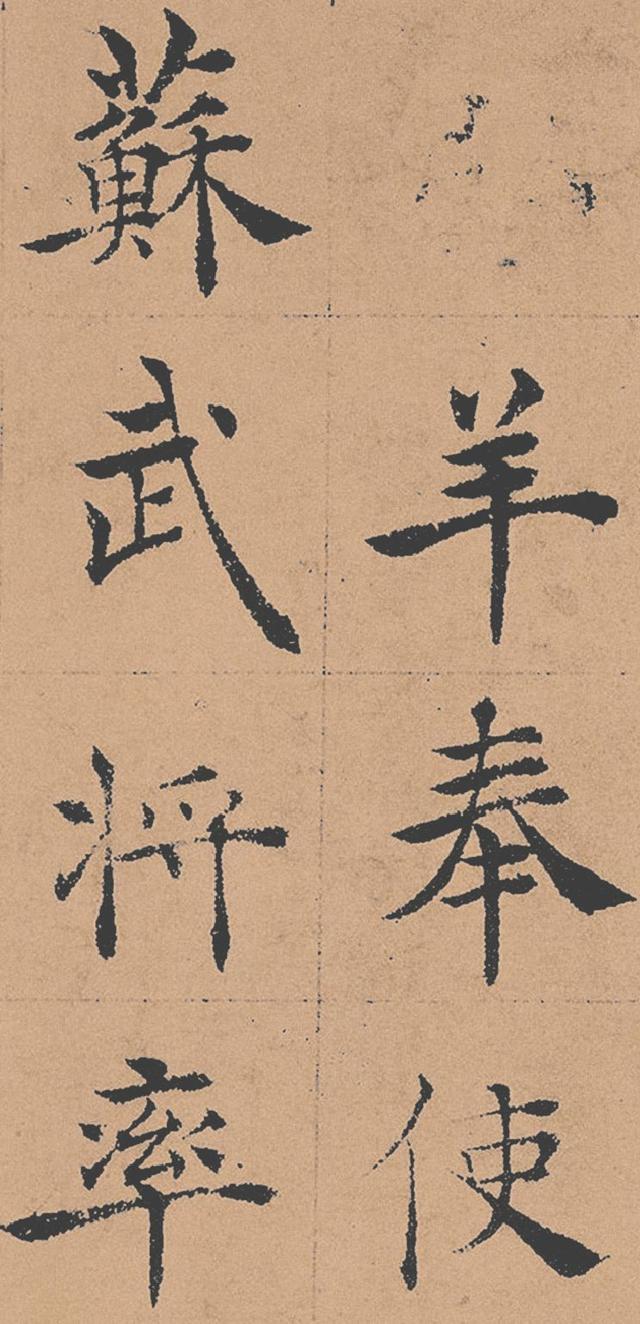 羊奉使
蘇武將率